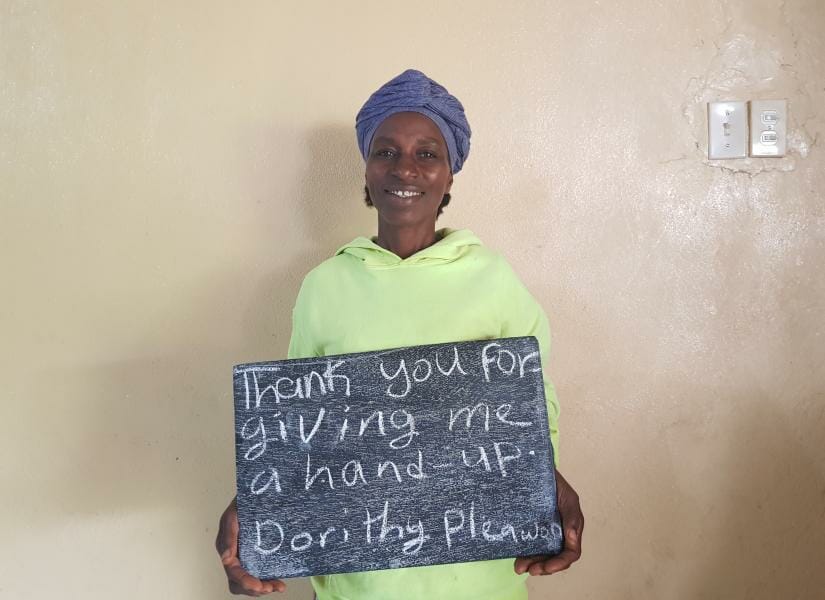 Thank you for
giving me
a hand-up.
Dorithy Pleawon